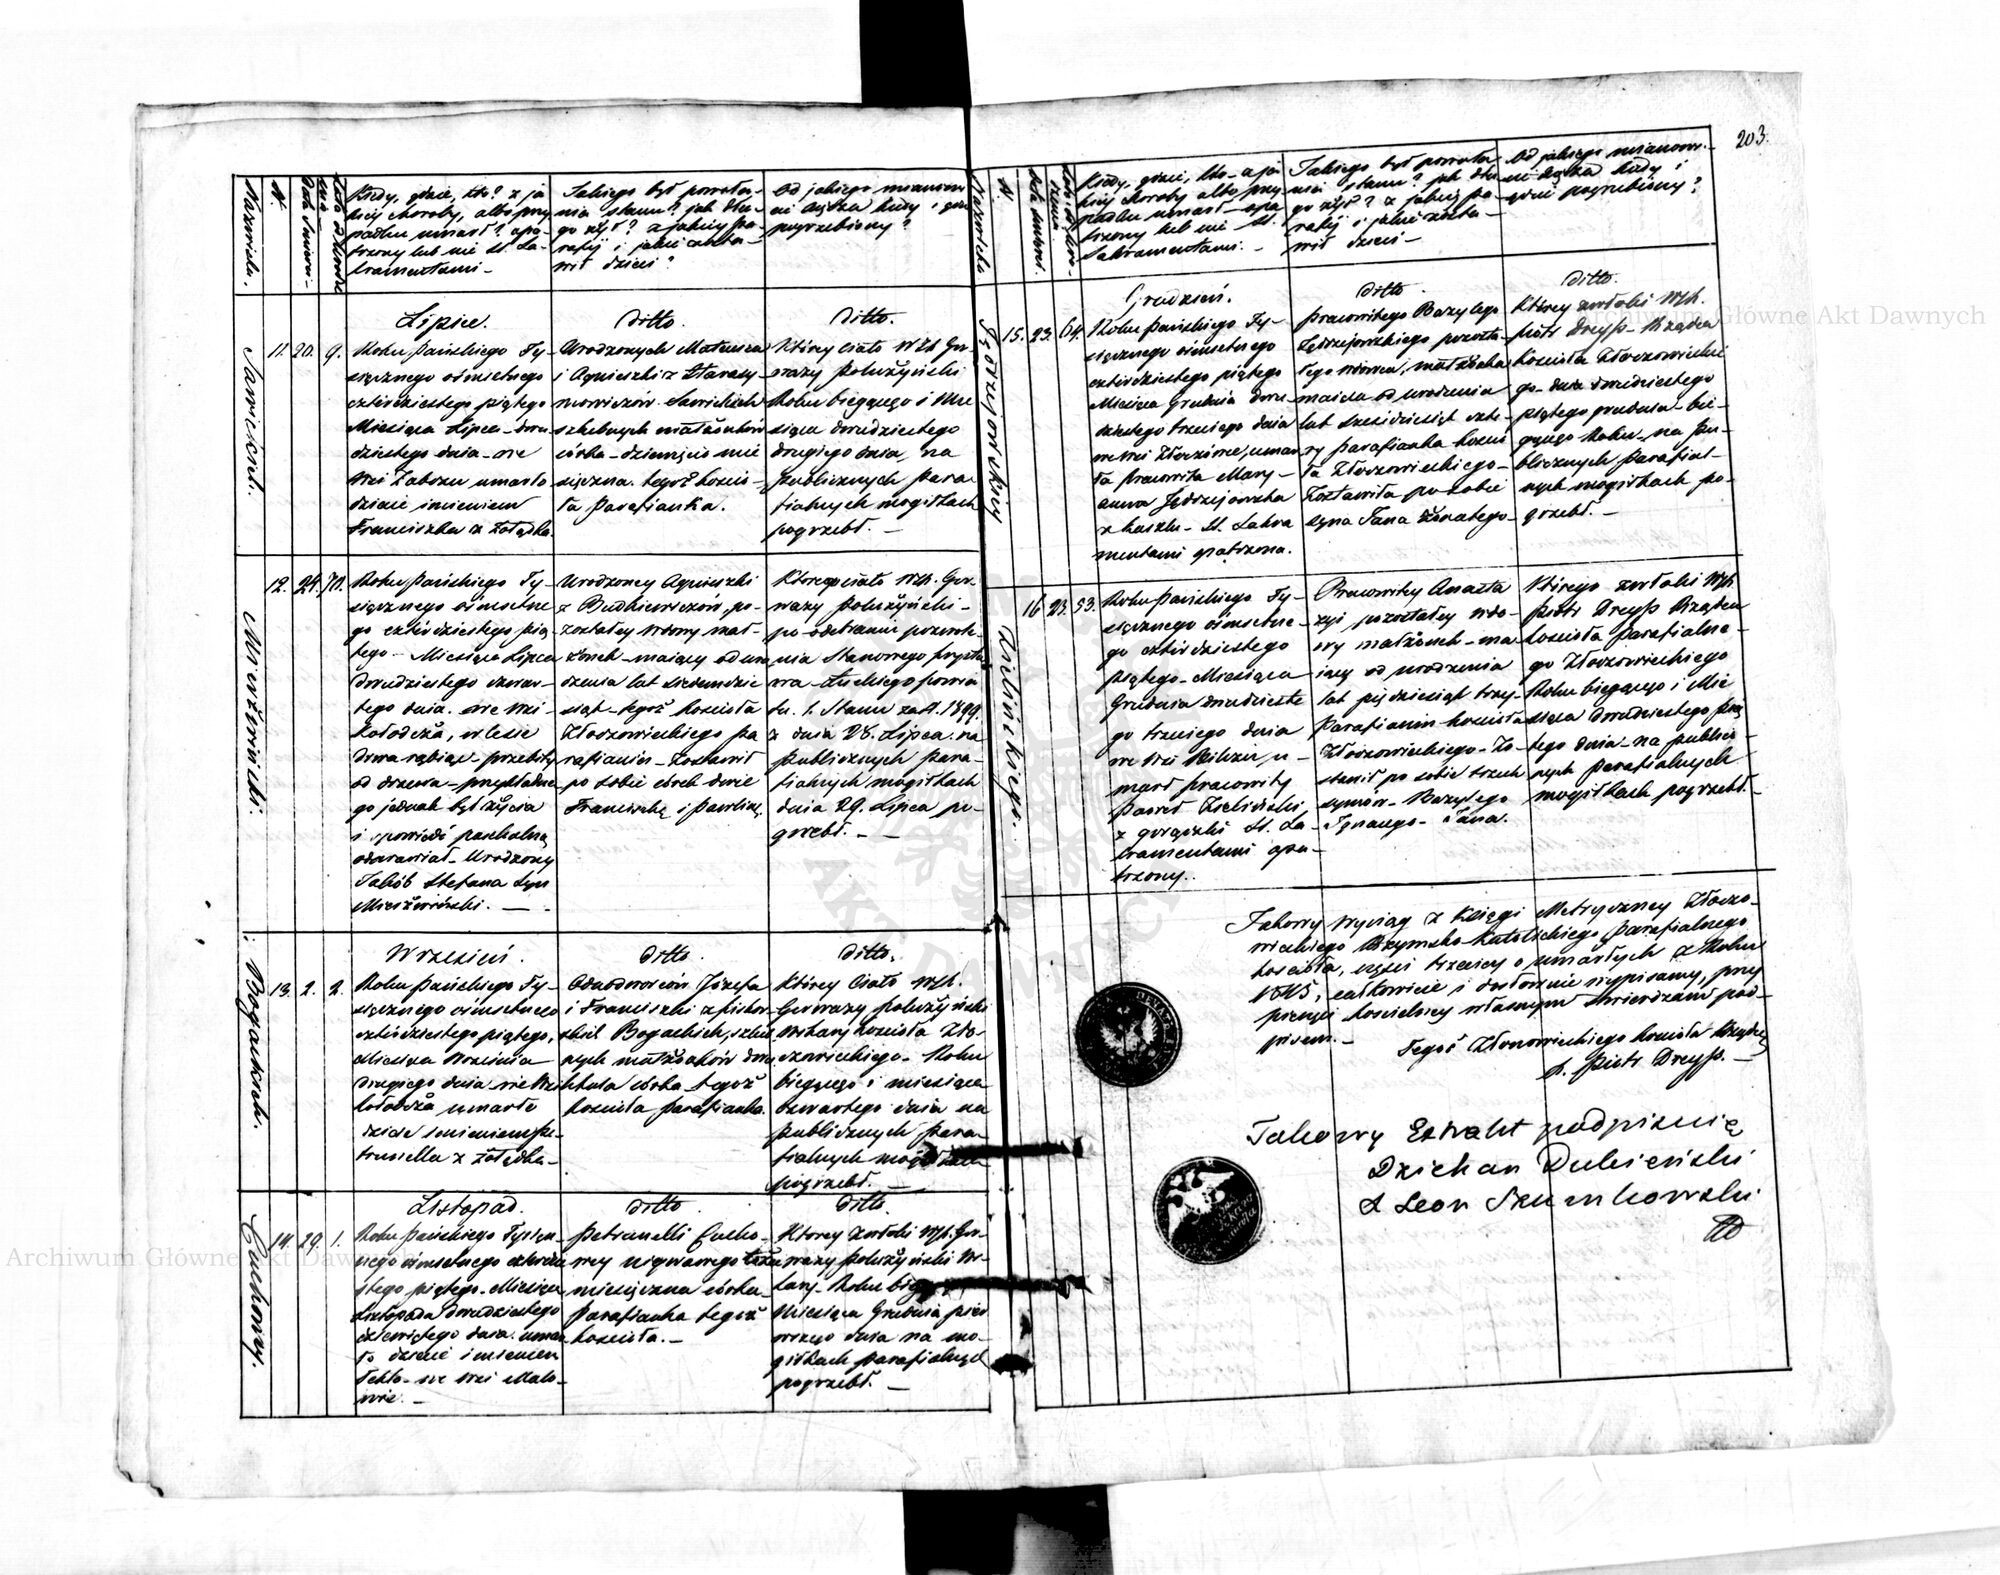 203.
Nazwiska.
N.
Data śmierci.
Kiedy, gdzie, kto? z ja
kiej choroby, albo przy
padku umarł? opa-
trzony lub nie Ś. Sa-
kramentami –
Jakiego był powoła-
nia stanu? jak dłu-
go żył? z jakiej pa-
rafij i jakie zosta-
wił dzieci?
Od jakiego mianowi
cie Księdza kiedy i gdzie
pogrzebiony?
Sawickich.
11.
20.
9.
Lipiec.
Roku Pańskiego Ty-
siącznego ośmsetnego
cztérdziestego piątego
Miesiąca Lipca – dwu
dziestego dnia – we
Wsi Zaborzu umarło
dziecie imieniem
Franciszka z żołądka.
Ditto.
Urodzonych Mateusza
i Agnieszki z Starasy-
mowiczów Sawickich
szlubnych małżonków
córka – dziewięcio mie
sięczna. tegoż kościo-
ła Parafianka.
Ditto.
Którey ciało WJX Ger
wazy Połużyński
Roku biegącego i Mie
siąca dwudziestego
drugiego dnia na
Publicznych Para
fialnych mogiłkach
pogrzebł. –
Mierżwiński.
12.
24.
70.
Roku Pańskiego Ty-
siącznego ośmsetne
go cztérdziestego pią
tego – Miesiąca Lipca
dwudziestego czwar-
tego dnia. we Wsi
Kołodeża, w lesie
drwa rąbiąc – przebity
od drzewa – przykładne
go jednak był życia
i spowiedź paschalną
odprawiał – Urodzony
Jakób Stefana Syn
Mierżwiński. –
Urodzoney Agnieszki
z Budkiewiczów, po-
zostałey wdowy mał-
żonek – maiący od uro
dzenia lat siedemdzie
siąt – tegoż Kościoła
Złoczowieckiego pa
rafianin – Zostawił
po sobie córek dwie
Franciszkę i Pawlinę.
Którego ciało WJX. Ger
wazy Połużyński –
po odebraniu pozwole-
nia Stanowego Prysta
wa – Łuckiego powia
tu. 1. Stanu za N. 1899.
z dnia 28. Lipca. na
Publicznych para-
fialnych mogiłkach
dnia 29. Lipca po-
grzebł. –
Bogackich.
13.
2.
2.
Wrzesień.
Roku Pańskiego Ty-
siącznego ośmsetnego
cztérdziestego piątego,
Miesiąca Września
drugiego dnia we Wsi
Kołodeża umarło
dziecie imieniem Pe-
trunella z żołądka –
Ditto.
Odnodworców Józefa
i Franciszki
Bogackich, szlub
nych małżonków dwu
letnia córka – tegoż
kościoła parafianka.
Ditto.
Którey Ciało WJX.
Gerwazy Połużyński
Wikary kościoła Zło-
czowieckiego – Roku
biegącego i miesiąca
czwartego dnia na
Publicznych para-
fialnych mogiłkach
pogrzebł. –
Cuchowy.
14.
29.
1.
Listopad.
Roku Pańskiego Tysiącz
nego ośmsetnego czterdzie
stego piątego – Miesiąca
Listopada dwudziestego
dziewiątego dnia. umar
ło dziecie imieniem
Tekla – we Wsi Malo-
Ditto
Petrunelli Cucho-
wey
miesięczna córka –
Parafianka tegoż
kościoła. –
Ditto.
Którey zwłoki WJX. Ger
wazy Połużyński Wi-
kary – Roku bieg
Miesiąca Grudnia pier
wszego dnia na mo-
giłkach parafialnych
pogrzebł. –
Nazwiska
N.
Data śmierci.
Kiedy, gdzie, kto – z ja
kiej choroby albo przy
padku umarł – opa
trzony lub nie Ś.
Sakramentami. –
Jakiego był powoła
nia stanu? jak dłu
go żył? z jakiej pa-
rafij i jakie zosta-
wił dzieci –
Od jakiego mianowi-
cie Księdza kiedy i
gdzie pogrzebiony?
Jędrzejowskiey
15.
23.
64.
Grudzień.
Roku Pańskiego Ty-
siącznego ośmsetnego
cztérdziestego piątego
Miesiąca Grudnia dwu-
dziestego trzeciego dnia
we Wsi Złoczówce, umar
ła Pracowita Mary-
anna Jędrzejowska
z kaszlu – Ś. Sakra
mentami opatrzona.
Ditto.
Pracowitego Bazylego
Jędrzejowskiego pozosta-
łego wdowca, małżonka
maiąca od urodzenia
lat sześćdziesiąt czte-
ry parafianka kościo
ła Złoczowieckiego –
Zostawiła po sobie
syna Jana żonatego –
Ditto.
Którey zwłoki WJX.
Piotr Dreyß – Rządca
kościoła Złoczowieckie
go – dnia dwudziestego
piątego grudnia – bie-
gącego Roku na pu-
blicznych Parafial-
nych mogiłkach po-
grzebł. –
Zielinskiego.
16
23.
53.
Roku Pańskiego Ty-
siącznego ośmsetne-
go cztérdziestego
piątego – Miesiąca
Grudnia dwudzieste
go trzeciego dnia
we Wsi u-
marł pracowity
Paweł Zieliński
z gorączki Ś. Sa-
kramentami opa-
trzony.
Pracowitey Anasta
zyi pozostałey wdo-
wy małżonek – ma
iący od urodzenia
lat pięćdziesiąt trzy-
Parafianin kościoła
Złoczowieckiego – Zo-
stawił po sobie trzech
synów – Bazylego
Ignacego – Jana.
Którego zwłoki WJX
Piotr Dreyß Rządca
kościoła parafialne-
go Złoczowieckiego
Roku biegącego i Mie
siąca dwudziestego pią
tego dnia – na publicz-
nych Parafialnych
mogiłkach pogrzebł. –
Takowy wyciąg z Księgi Metryczney Złoczo-
wieckiego Rzymsko-Katolickiego parafialnego
kościoła, części trzeciey o umarłych z Roku
1845, całkowicie i dosłownie wypisany, przy
pieczęci kościelney własnym stwierdzam pod-
pisem. –
Tegoż Złoczowieckiego kościoła Rządca
X. Piotr Dreyß. –
Takowy Extrakt podpisuię
Dziekan Dubieński
X Leon Szumkowski
Archiwum Główne Akt Dawnych
Archiwum Główne Akt Dawnych